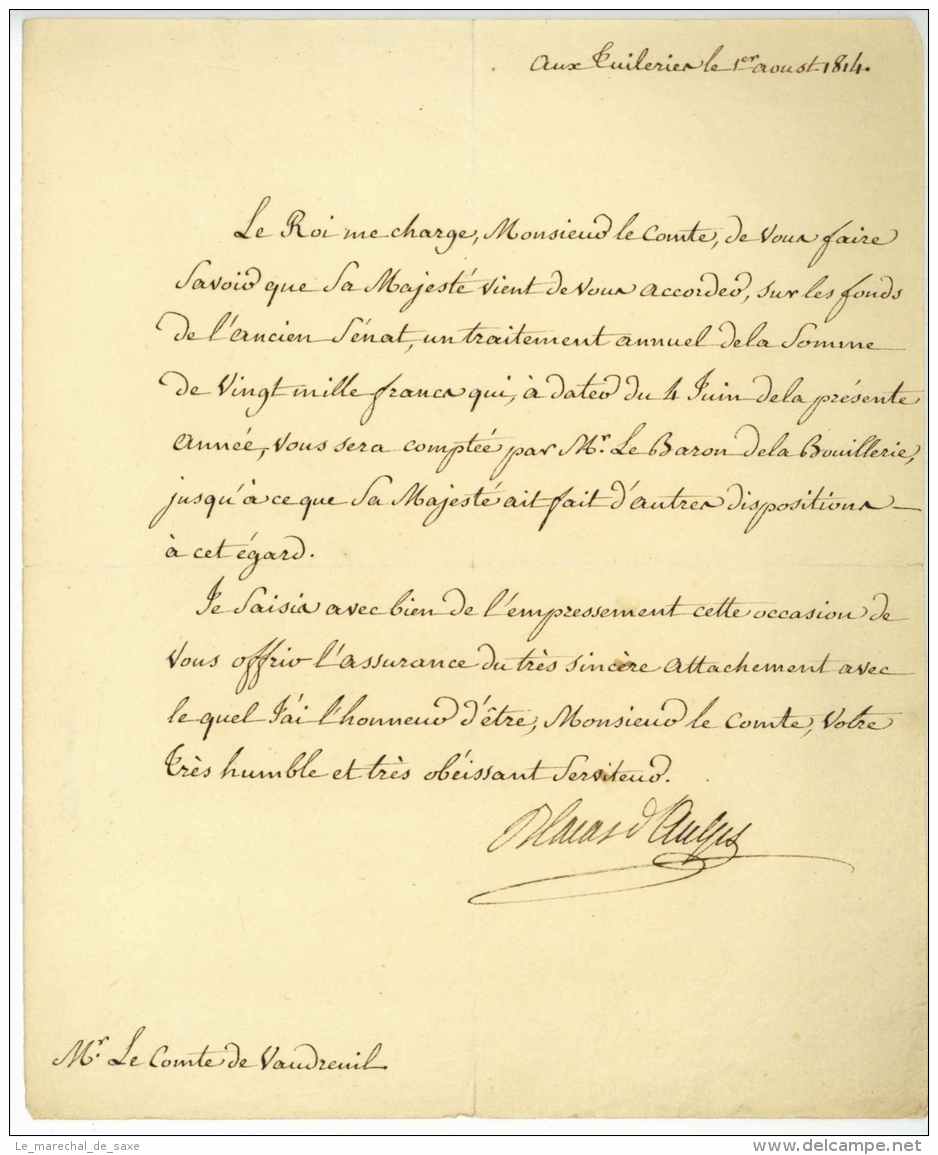 Aux Tuileries le 1er aoust 1814.
Le Roi me charge, Monsieur le Comte, de vous faire
Savoir que Sa Majesté vient de vous accorder, sur les fonds
de l'ancien Sénat, un traitement annuel de la Somme
de Vingt mille francs qui, à dater du 4 Juin de la présente
année, vous sera comptée par Mr. Le Baron de la Bouillerie,
jusqu'à ce que Sa Majesté ait fait d'autres dispositions
à cet égard.
Je Saisis avec bien de l'empressement cette occasion de
vous offrir l'assurance du très sincère attachement avec
le quel J'ai l'honneur d'être, Monsieur le Comte, Votre
Très humble et très obéissant Serviteur.
Blacas d'Aulps
Mr. Le Comte de Vaudreuil
Le_marechal_de_saxe
www.delcampe.net